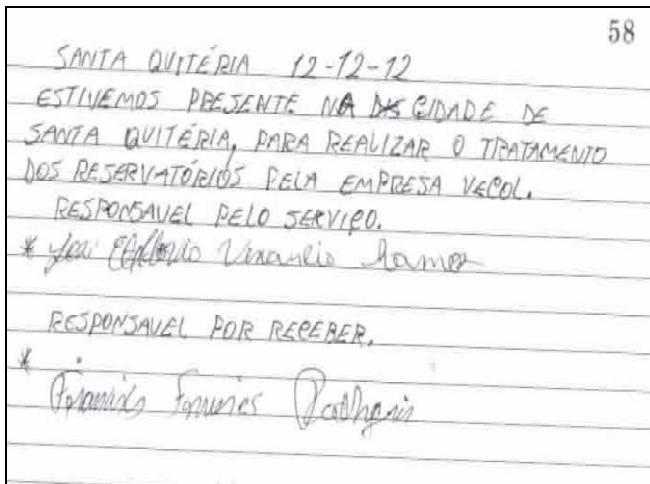 58
SANTA QUITÉRIA 12-12-12
ESTIVEMOS PRESENTE NA CIDADE DE
SANTA QUITÉRIA, PARA REALIZAR O TRATAMENTO
DOS RESERVATÓRIOS PELA EMPRESA VECOL.
RESPONSAVEL PELO SERVIÇO.
* Venancio Ramos
RESPONSAVEL POR RECEBER.
*